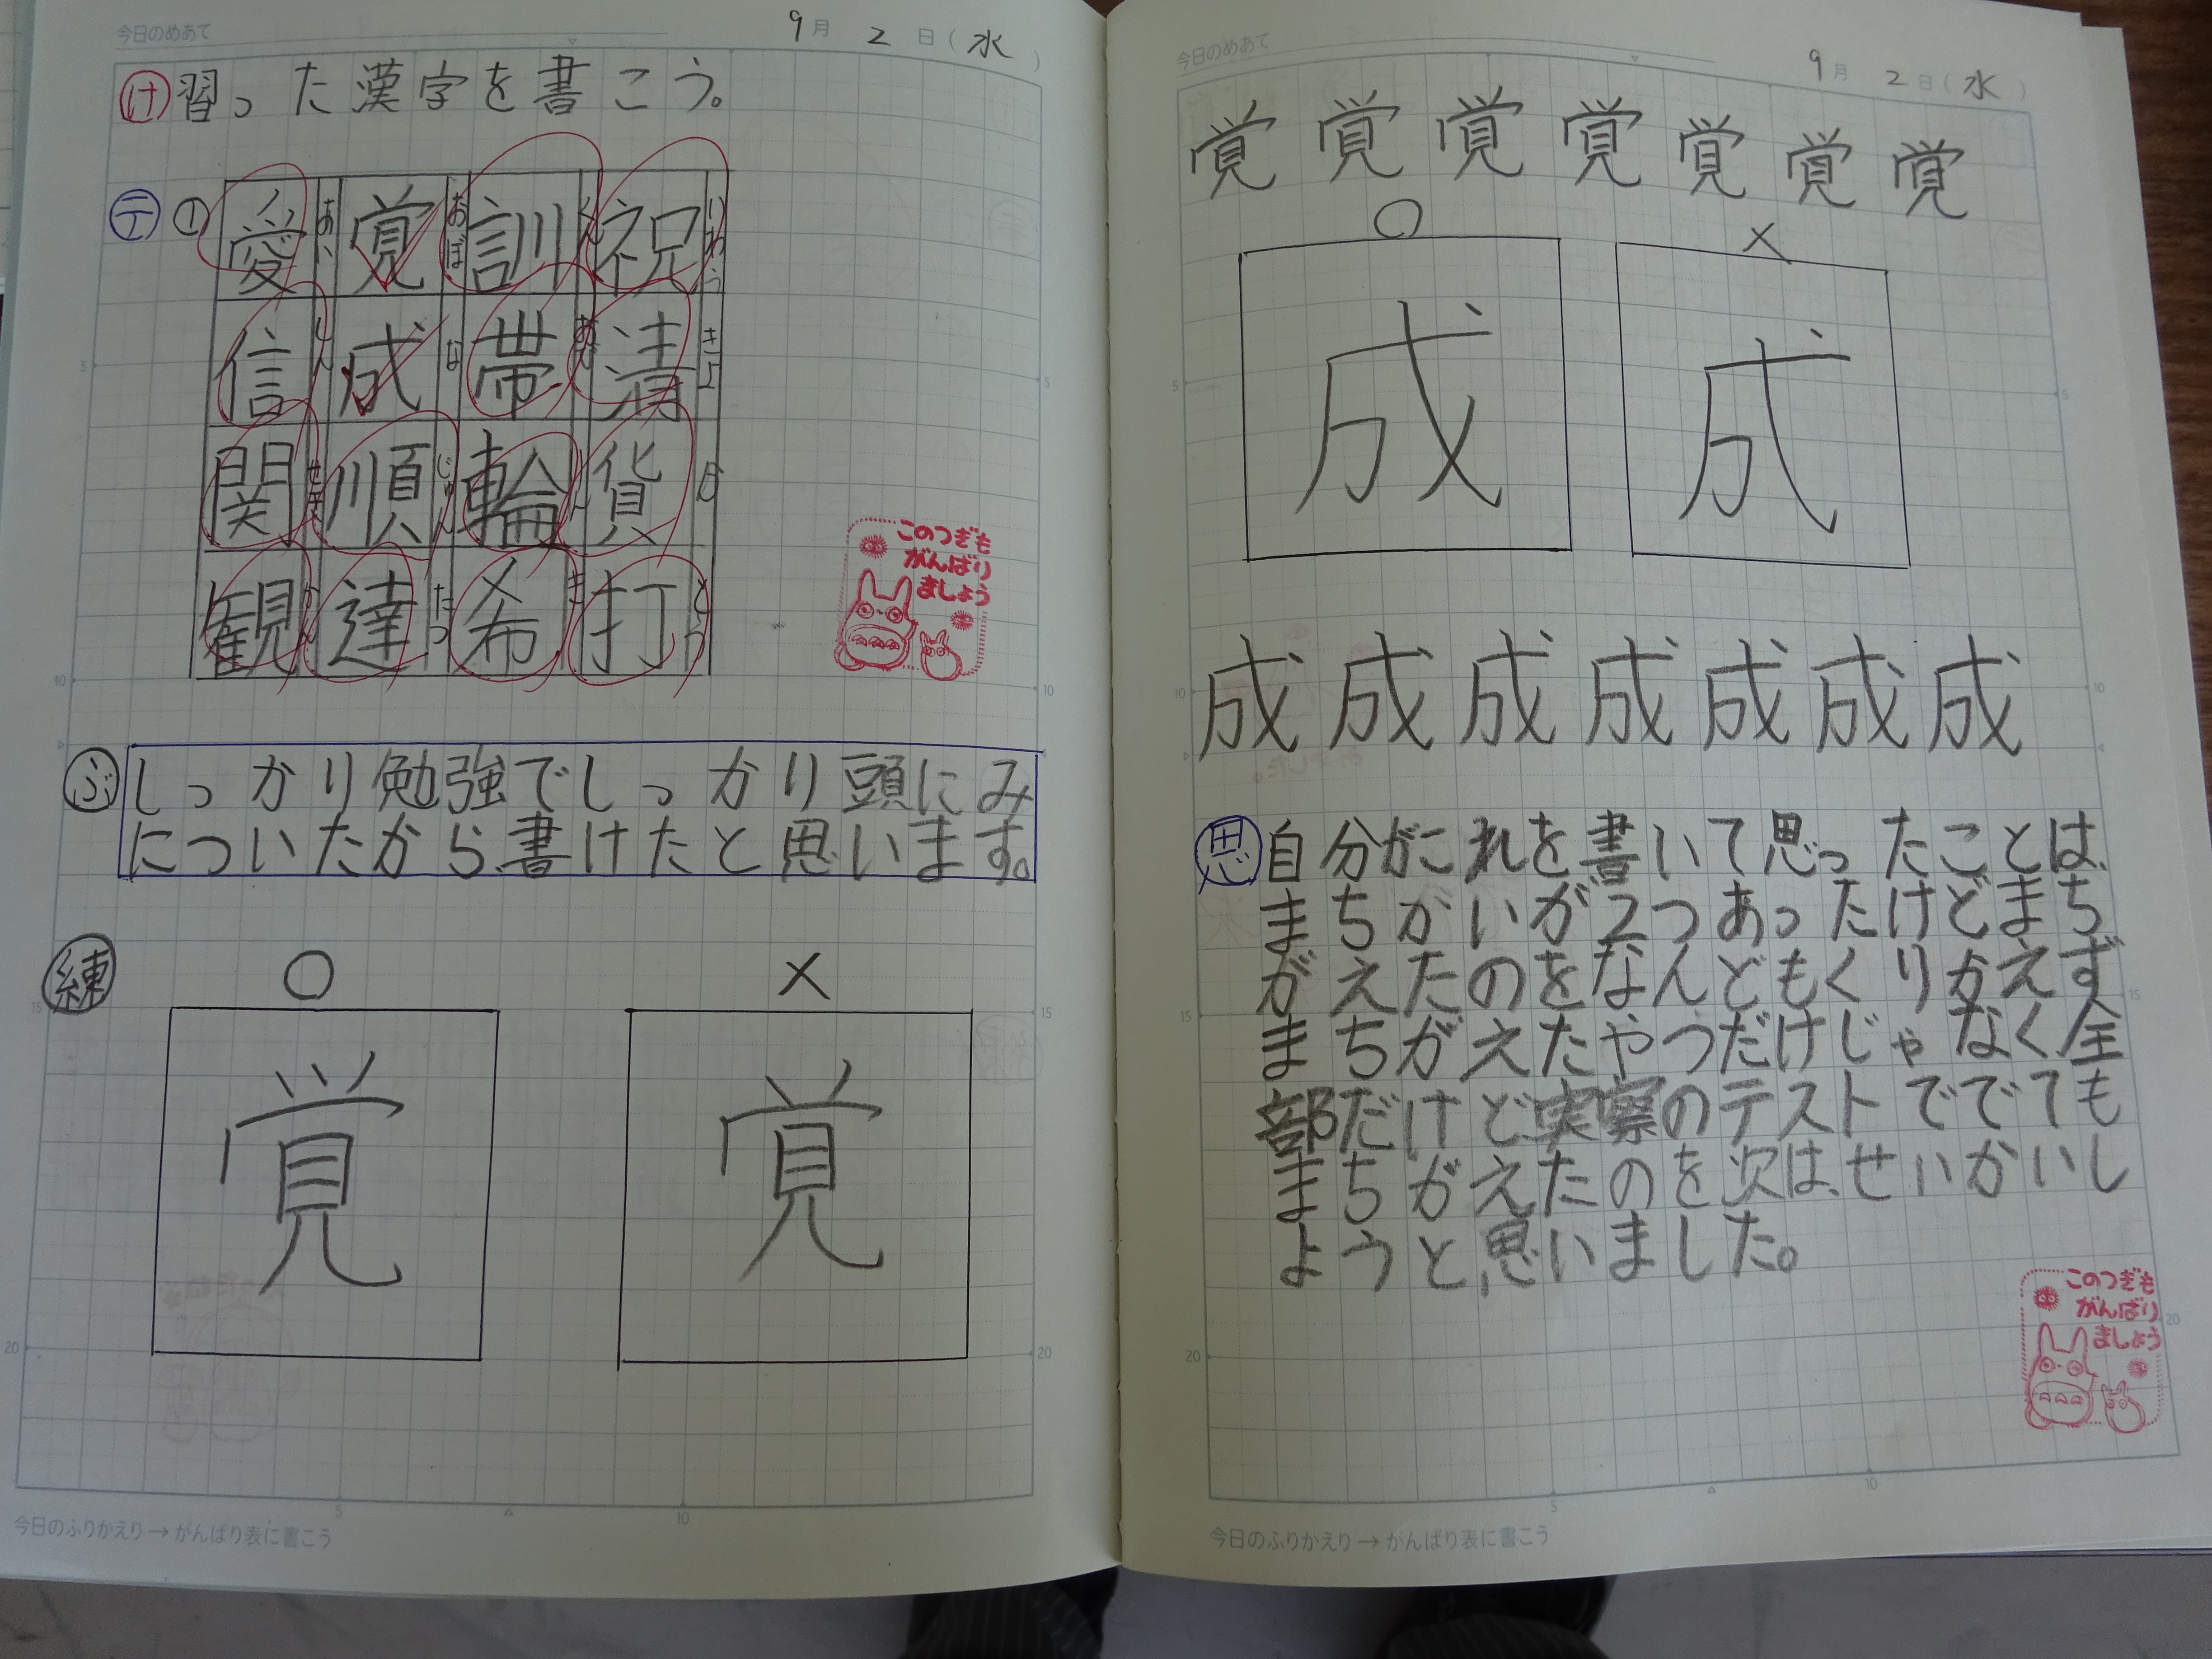 今日のめあて
9月 2日(水)
け 習った漢字を書こう。
テ ①
愛 覚 訓 祝
信 成 帯 清
関 順 輪 貨
観 達 希 打
このつぎも
がんばり
ましょう
ぶ しっかり勉強でしっかり頭にみ
についたから、書けたと思います。
練 ○ ×
覚 覚
今日のふりかえり→がんばり表に書こう
今日のめあて
9月 2日(水)
覚 覚 覚 覚 覚 覚 覚
○ ×
成
成 成 成 成 成 成 成
思 自分がこれを書いて思ったことは、
まちがいが2つあったけどまち
がえたのをなんどもくりかえず
まちがえたやつだけじゃなく全
部だけど実察のテストででても
まちがえたのを次は、せいかいし
ようと、思いました。
このつぎも
がんばり
ましょう
今日のふりかえり→がんばり表に書こう